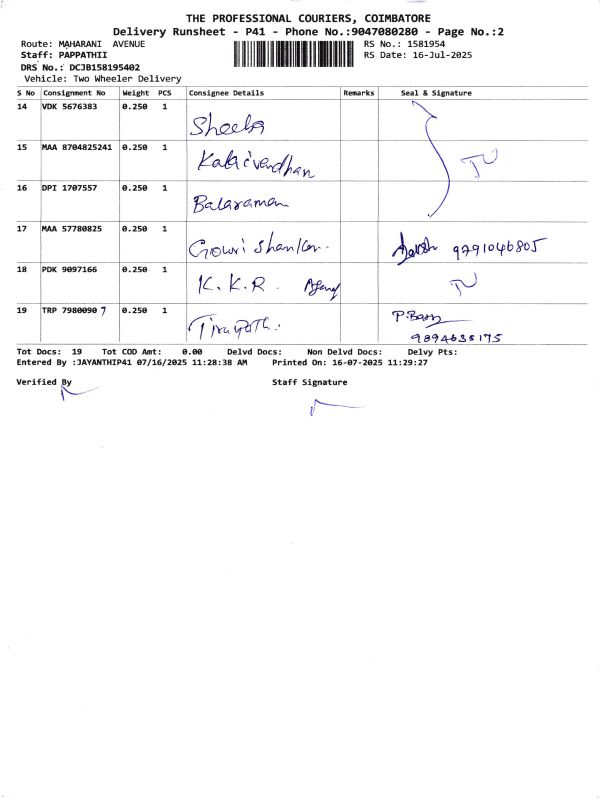 THE PROFESSIONAL COURIERS, COIMBATORE
Delivery Runsheet - P41 - Phone No.:9047080280 - Page No.:2
Route: MAHARANI AVENUE RS No.: 1581954
Staff: PAPPATHII RS Date: 16-Jul-2025
DRS No.: DCJB158195402
Vehicle: Two Wheeler Delivery
S No Consignment No Weight PCS Consignee Details Remarks Seal & Signature
14 VDK 5676383 0.250 1 Sheeba
15 MAA 8704825241 0.250 1 Kalaivendhan
16 DPI 1707557 0.250 1 Balaraman
17 MAA 57780825 0.250 1 Gowri Shankar. 9791046805
18 PDK 9097166 0.250 1 K. K. R
19 TRP 7980090 7 0.250 1 9894635175
Tot Docs: 19 Tot COD Amt: 0.00 Delvd Docs: Non Delvd Docs: Delvy Pts:
Entered By :JAYANTHIP41 07/16/2025 11:28:38 AM Printed On: 16-07-2025 11:29:27
Verified By Staff Signature